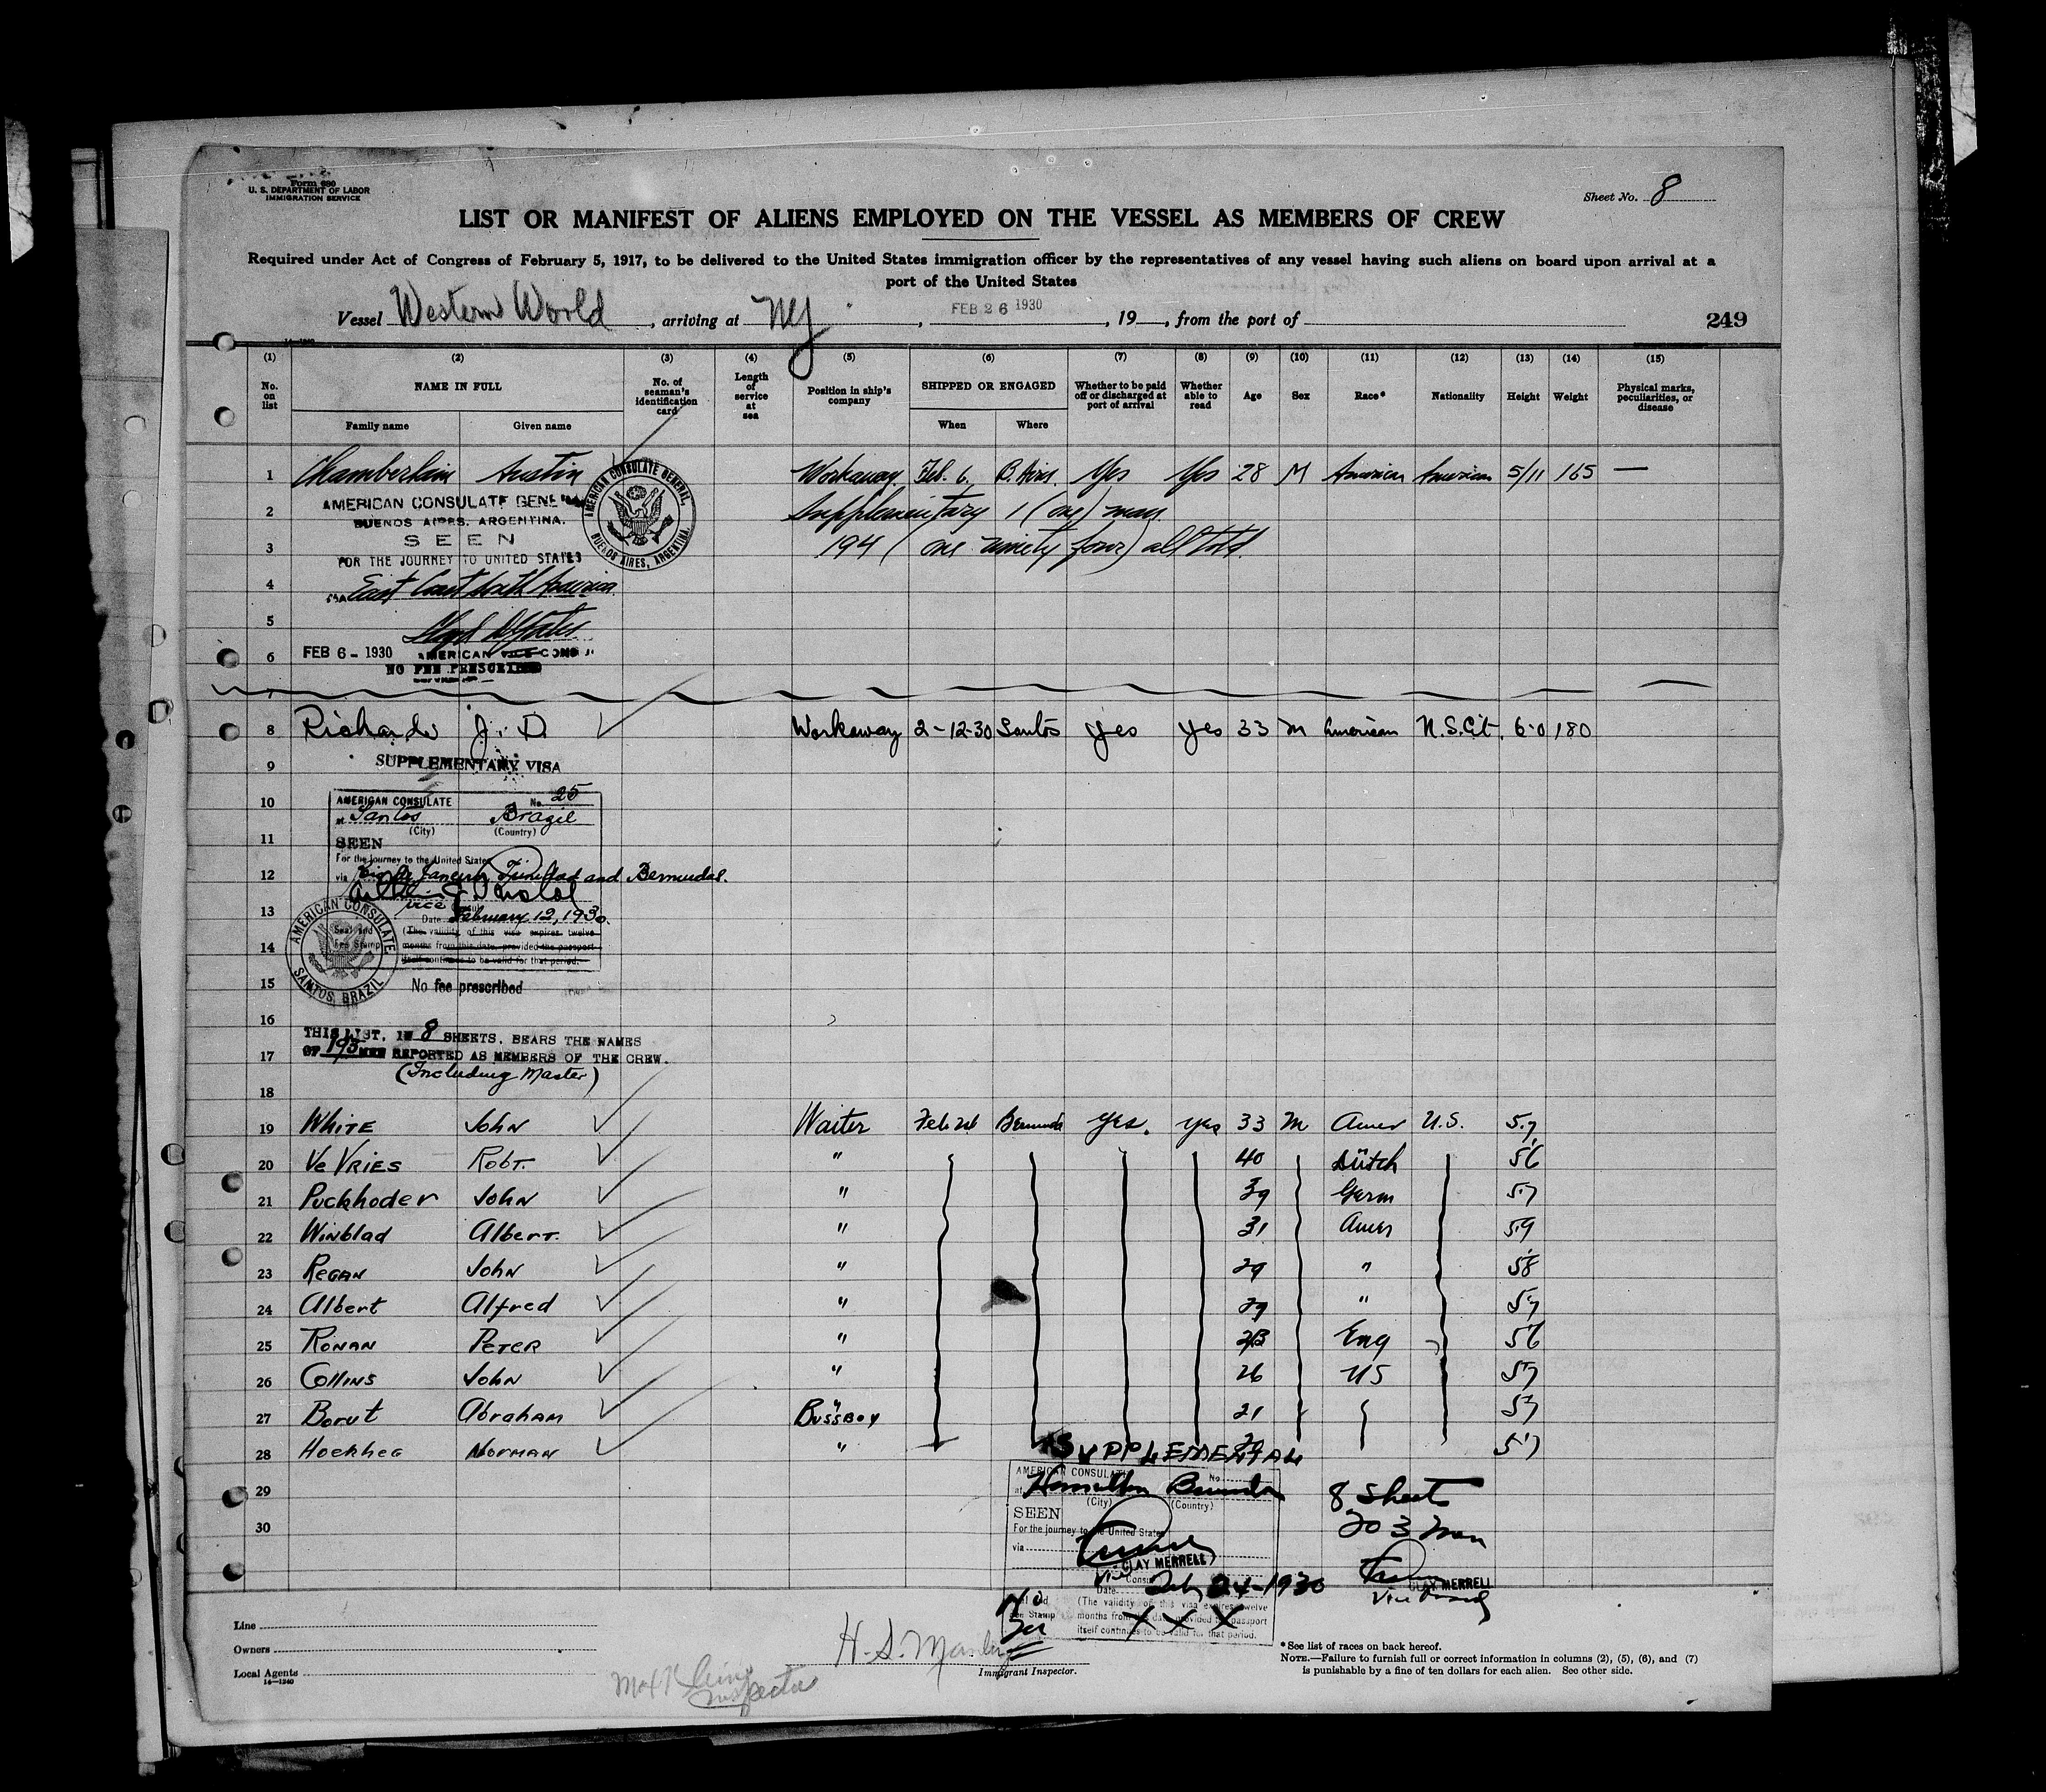 Form 680
U. S. DEPARTMENT OF LABOR
IMMIGRATION SERVICE
Sheet No. 8
LIST OR MANIFEST OF ALIENS EMPLOYED ON THE VESSEL AS MEMBERS OF CREW
Required under Act of Congress of February 5, 1917, to be delivered to the United States immigration officer by the representatives of any vessel having such aliens on board upon arrival at a
port of the United States
Vessel Western World, arriving at NY, FEB 26 1930, 19__, from the port of
249
(1) (2) (3) (4) (5) (6) (7) (8) (9) (10) (11) (12) (13) (14) (15)
No. on list NAME IN FULL Family name Given name No. of seaman's identification card Length of service at sea Position in ship's company SHIPPED OR ENGAGED When Where Whether to be paid off or discharged at port of arrival Whether able to read Age Sex Race* Nationality Height Weight Physical marks, peculiarities, or disease
1 Chamberlain Austin Workaway Feb. 6. B. Aires. Yes Yes 28 M American American 5/11 165 —
AMERICAN CONSULATE GENERAL
AMERICAN CONSULATE GENERAL, BUENOS AIRES, ARGENTINA.
2 Supplementary 1 (one) man
BUENOS AIRES, ARGENTINA.
SEEN
3 194 (one ninety four) all told
FOR THE JOURNEY TO UNITED STATES
4 VIA East Coast South America
5
6 FEB 6 - 1930 AMERICAN VICE CONSUL
NO FEE PRESCRIBED
7
8 Richards J. D. Workaway 2-12-30 Santos Yes Yes 33 M American U.S.Cit. 6-0 180
SUPPLEMENTARY VISA
9
10 AMERICAN CONSULATE No. 25
at Santos Brazil
(City) (Country)
11 SEEN
For the journey to the United States
12 via Rio de Janeiro Trinidad and Bermudas.
Vice Consul
13 Date February 12, 1930.
AMERICAN CONSULATE SANTOS, BRAZIL
Seal and Fee Stamp
(The validity of this visa expires twelve
14 months from this date, provided the passport
itself continues to be valid for that period.
15 No fee prescribed
16
THIS LIST, IN 8 SHEETS, BEARS THE NAMES
17 OF 195 MEN REPORTED AS MEMBERS OF THE CREW.
(Including Master)
18
19 WHITE JOHN Waiter Feb 24 Bermuda Yes. Yes 33 M Amer U.S. 5.7
20 De VRIES ROBT. " 40 Dutch 56
21 Puckhoder JOHN " 39 Germ 5.7
22 Winblad Albert. " 31 Amer 59
23 REGAN JOHN " 29 " 58
24 Albert Alfred " 29 " 57
25 RONAN PETER " Eng 56
26 COllINS JOHN " 26 US 57
27 Borut Abraham BUSSBOY 21 57
28 NORMAN " 57
SUPPLEMENTAL
29 AMERICAN CONSULATE No.
at Hamilton Bermuda
(City) (Country)
8 Sheets
SEEN
30 For the journey to the United States
203 Men
via
CLAY MERRELL
Vice Consul
Date Feb 24-1930
CLAY MERRELL
Vice Consul
Seal and Fee Stamp
No Fee
(The validity of this visa expires twelve
months from this date, provided the passport
itself continues to be valid for that period.
X X X
Line
Owners
Local Agents
16—1240
Immigrant Inspector.
Inspector
*See list of races on back hereof.
NOTE.—Failure to furnish full or correct information in columns (2), (5), (6), and (7)
is punishable by a fine of ten dollars for each alien. See other side.